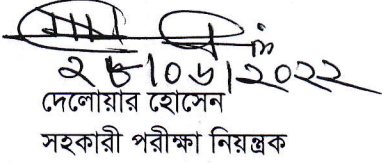 ২৮|০৬|২০২২
দেলোয়ার হোসেন
সহকারী পরীক্ষা নিয়ন্ত্রক